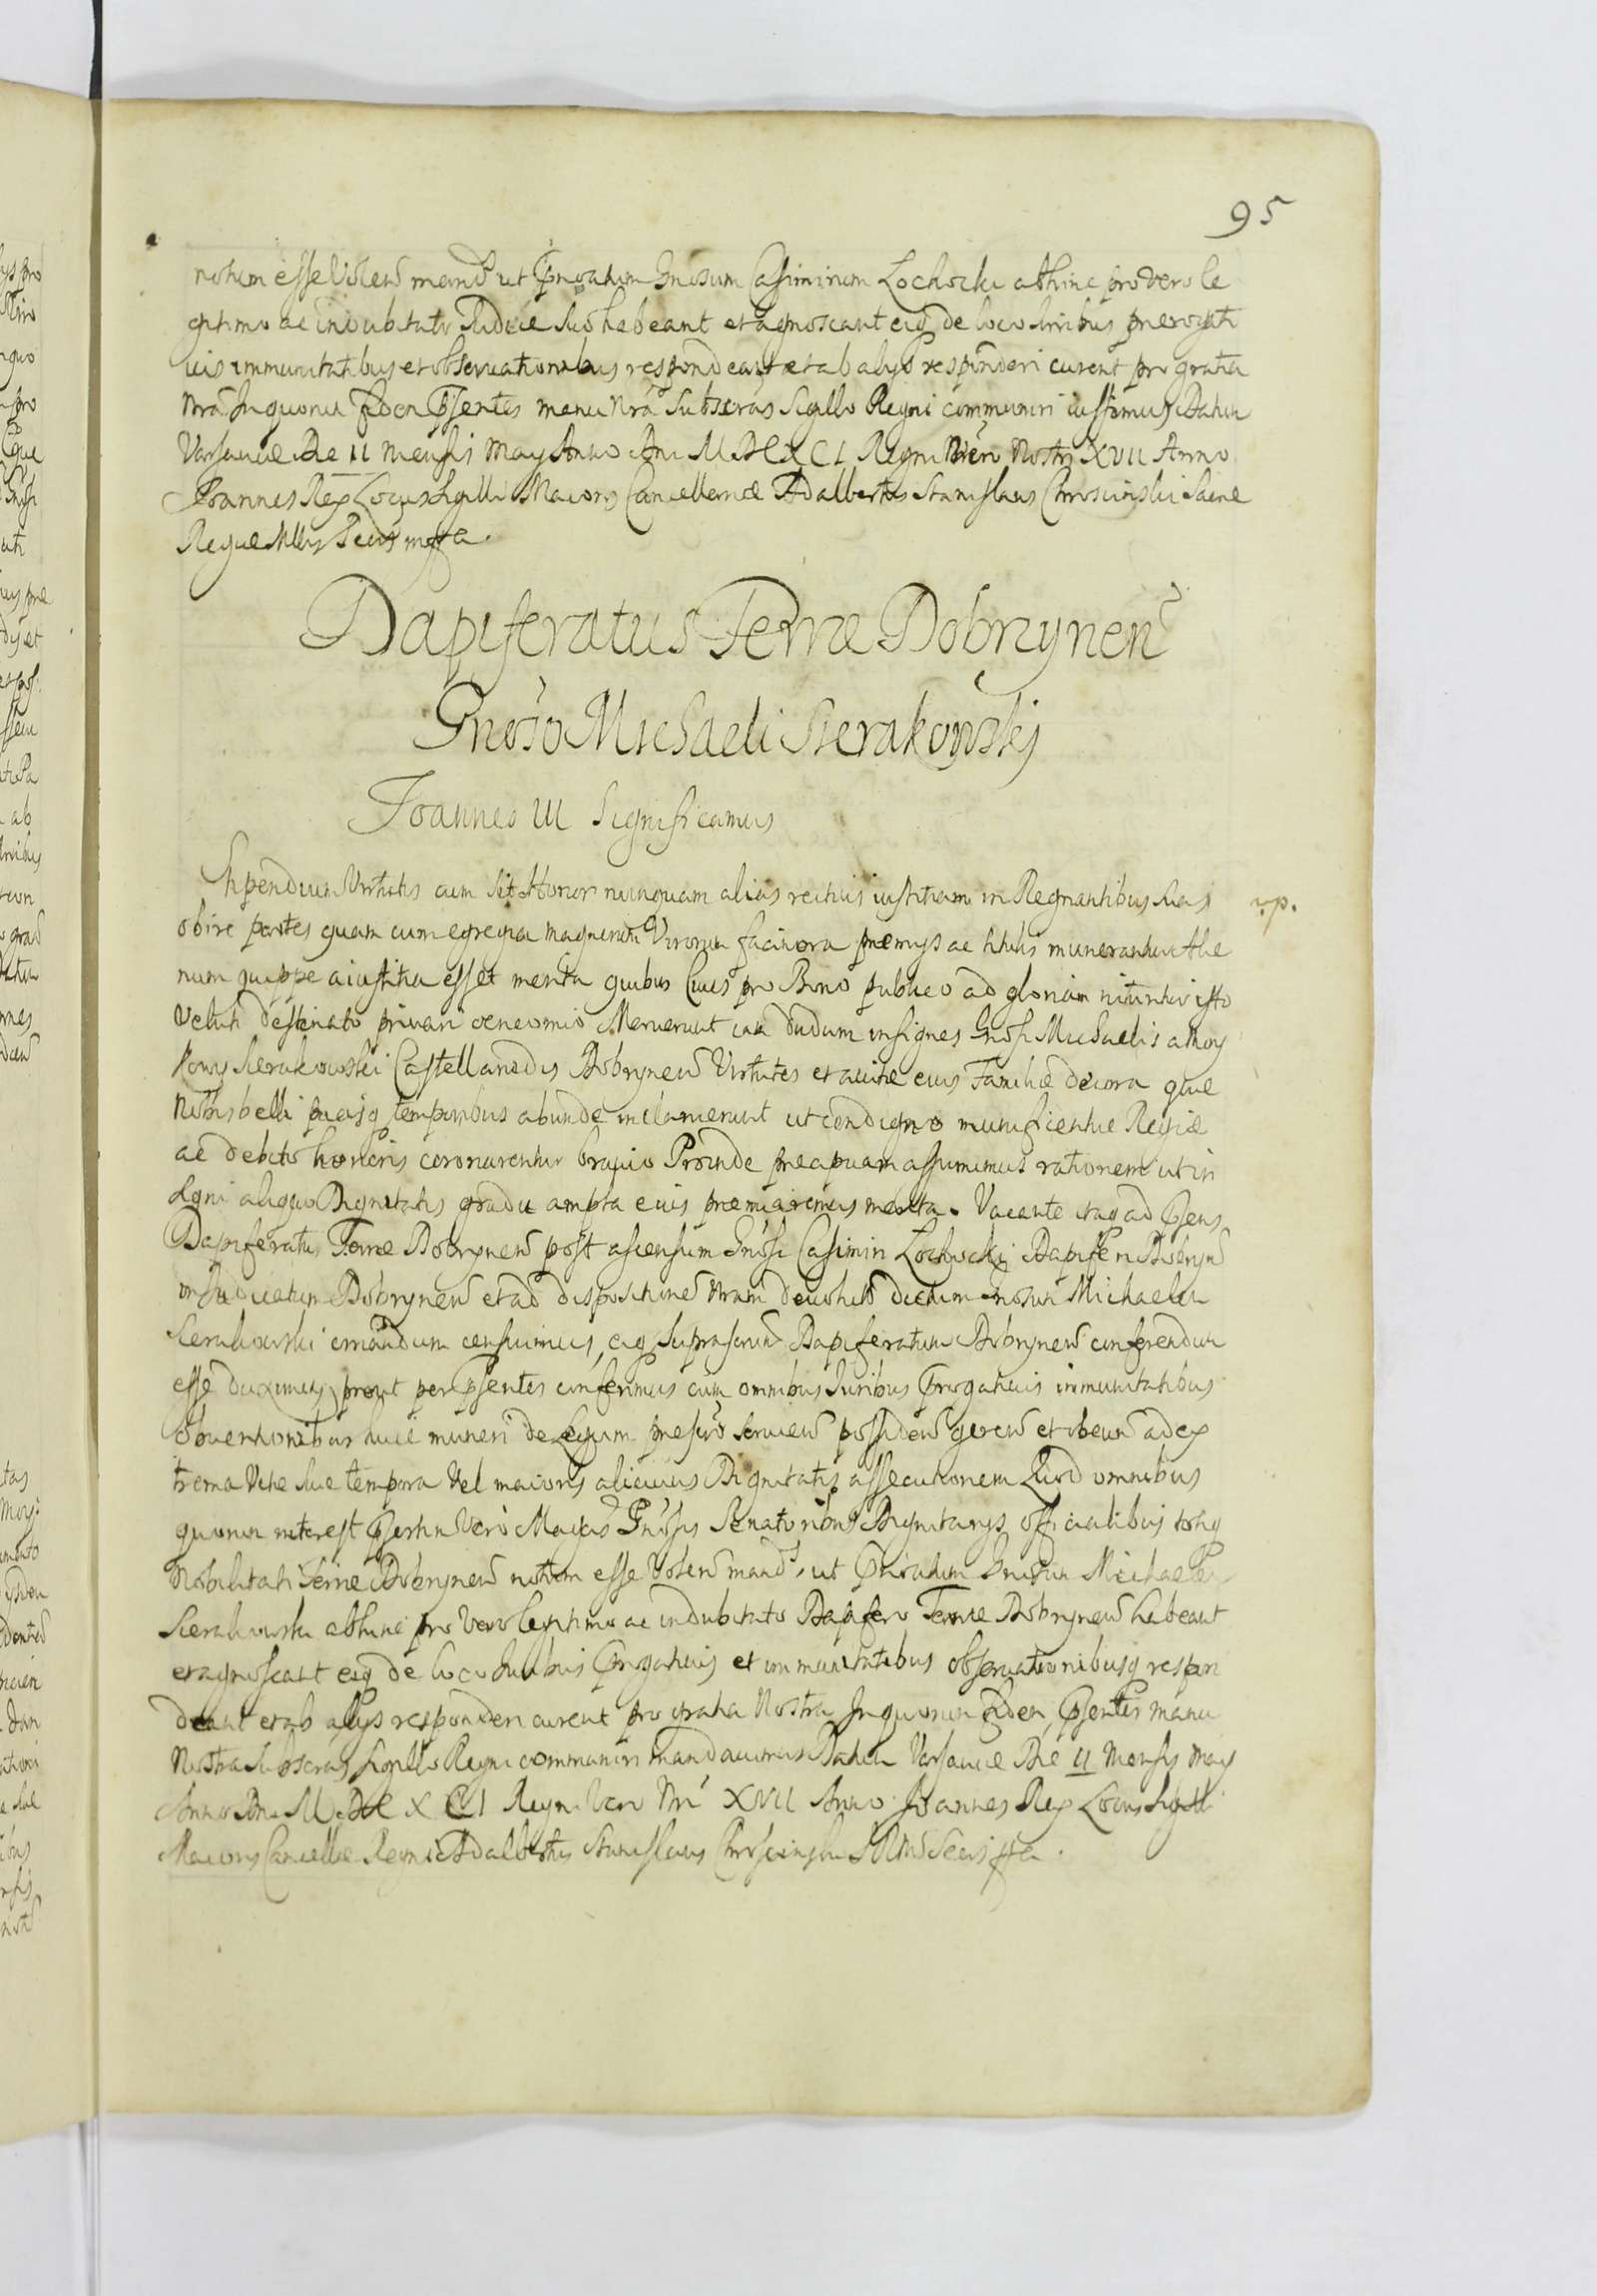 95
notum esse Volens mand ut Pnoatum Gnosum Casimirum Lochocki abhinc pro Vero le
gitimo ac indubitato Judice suo habeant et agnoscant eiq de loco Juribus prerogati
uis immunitatibus et obseruationibus respondeant et ab alys responderi curent pro gratia
Nra In quorum fidem Psentes manu Nra Subscras Sigillo Regni communiri iussimus Datum
Varsauie Die 11 Mensis May Anno Dni M.DCXCI Regni Vero Nostri XVII Anno
Joannes Rex Locus Sigilli Maioris Cancellariæ Adalbertus Stanislaus Chroscinski Sacræ
Regiæ Mttis Secrs mppa.
Dapiferatus Terræ Dobrzynen
Gnoso Michaeli Sierakowski
Joannes III Significamus
Stipendium Virtutis cum sit Honor nunquam alias rectius iustitiam in Regnantibus suas
obire partes quam cum egregia magnorum Virorum facinora premys ac titulis munerantur Alie
num quippe a iustitia esset merita quibus Ciues pro Bono publico ad gloriam nituntur isto
Veluti destinato priuari oeneomio Meruerunt iam dudum insignes Gnosi Michaelis a Moy
kowy Sierakowski Castellanidis Dobrynen Virtutes et auitæ eius Familiæ decora quæ
Nobis belli pacisq temporibus abunde inclaruerunt ut condigno munificentiæ Regiæ
ac debito honoris coronarentur brauio Proinde precipuam assumimus rationem ut in
signi aliquo Dignitatis gradu ampla eius præmiaremus merita. Vacante itaq ad Psens
Dapiferatu Terræ Dobrynen post ascensum Gnosi Casimiri Lochocki Dapiferi Dobryn
in Judicatum Dobrynen et ad dispositione Nram deuoluto dictum Gnosum Michaelem
Sierakowski ornandum censuimus, eiq suprascrum Dapiferatum Dobrynen conferendum
esse duximus, prout per Psentes conferimus cum omnibus Juribus Prrogatiuis immunitatibus
obuentionibus huic muneri de Legum prescro seruien possiden geren et obeun ad ex
trema Vitæ suæ tempora Vel maioris alicuius Dignitatis assecutionem Quod omnibus
quorum interest Psertim Vero Magcis Gnosis Senatoribus Dignitarys officialibus totiq
Nobilitati Terræ Dobrynen notum esse Volens mand, ut Pnoatum Gnosum Michaelem
Sierakowski abhinc pro Vero legitimo ac indubitato Dapifero Terræ Dobrynen habeant
et agnoscant eiq de loco Juribus Prrogatiuis et immunitatibus obseruationibusq respon
deant et ab alys responderi curent pro gratia Nostra In quorum fidem, Psentes manu
Nostra Subscras Sigillo Regni communiri mandauimus Datum Varsauie Die 11 Mensis May
Anno Dni M.DCXCI Regni Vero Nri XVII Anno Joannes Rex Locus Sigilli
Maioris Cancellæ Regni Adalbertus Stanislaus Chroscinski SRMs Secris ppa.